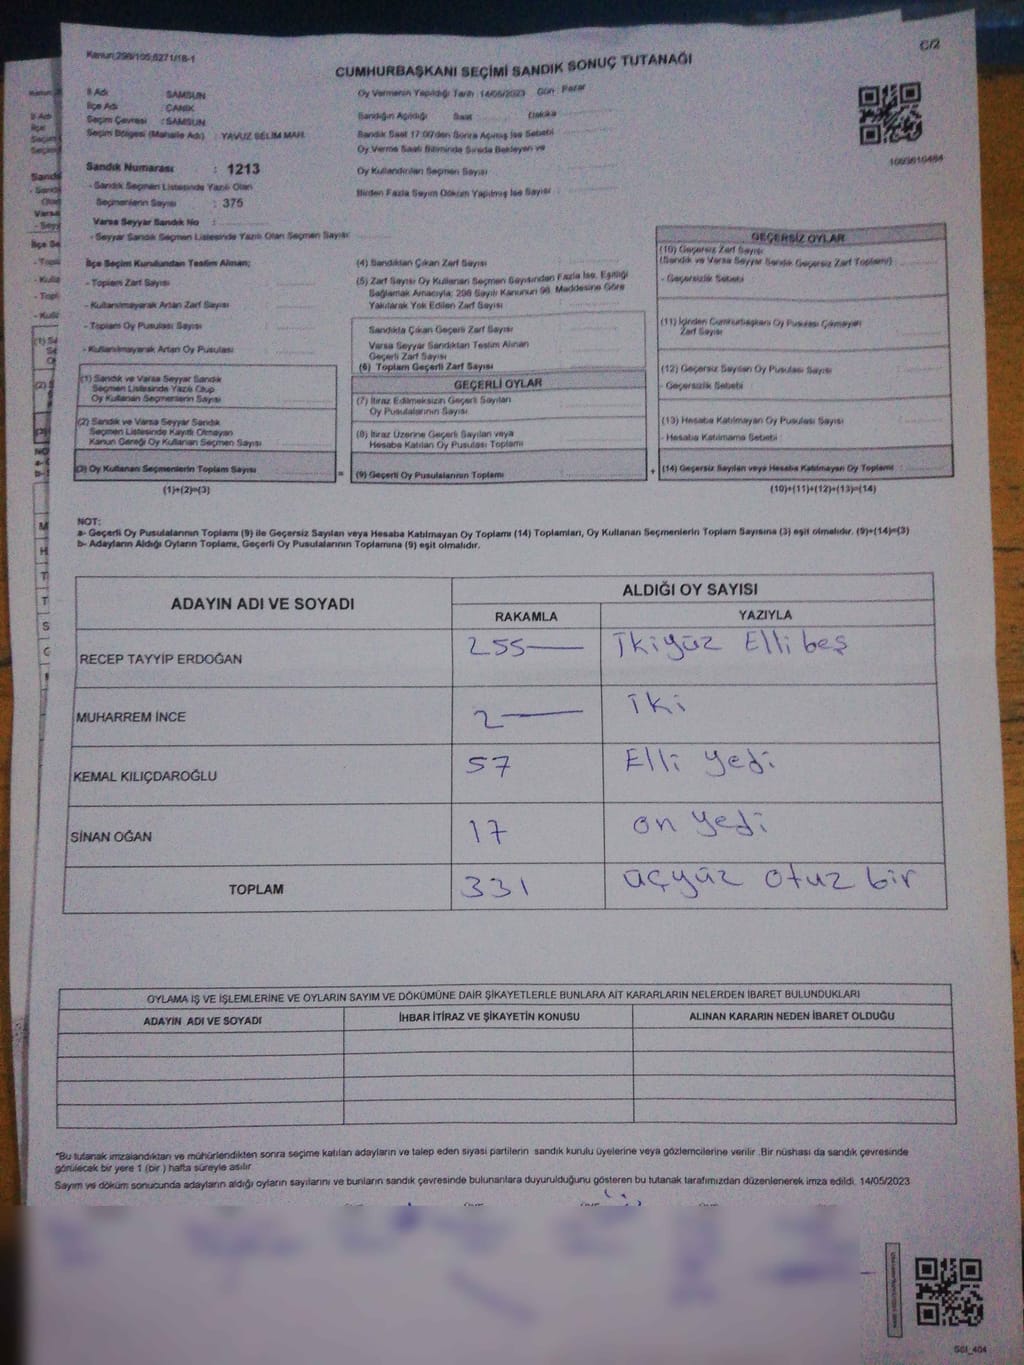 Kanun:298/105;6271/18-1
C/2
CUMHURBAŞKANI SEÇİMİ SANDIK SONUÇ TUTANAĞI
İl Adı : SAMSUN
İlçe Adı : CANİK
Seçim Çevresi : SAMSUN
Seçim Bölgesi (Mahalle Adı) : YAVUZ SELİM MAH.
Sandık Numarası : 1213
- Sandık Seçmen Listesinde Yazılı Olan
Seçmenlerin Sayısı : 375
Varsa Seyyar Sandık No :
- Seyyar Sandık Seçmen Listesinde Yazılı Olan Seçmen Sayısı
Oy Vermenin Yapıldığı Tarih :14/05/2023 Gün : Pazar
Sandığın Açıldığı Saat Dakika
Sandık Saat 17:00'den Sonra Açılmış İse Sebebi
Oy Verme Saati Bitiminde Sırada Bekleyen ve
Oy Kullandırılan Seçmen Sayısı
Birden Fazla Sayım Döküm Yapılmış İse Sayısı
İlçe Seçim Kurulundan Teslim Alınan;
- Toplam Zarf Sayısı
- Kullanılmayarak Artan Zarf Sayısı
- Toplam Oy Pusulası Sayısı
- Kullanılmayarak Artan Oy Pusulası
(1) Sandık ve Varsa Seyyar Sandık
Seçmen Listesinde Yazılı Olup
Oy Kullanan Seçmenlerin Sayısı
(2) Sandık ve Varsa Seyyar Sandık
Seçmen Listesinde Kayıtlı Olmayan
Kanun Gereği Oy Kullanan Seçmen Sayısı
(3) Oy Kullanan Seçmenlerin Toplam Sayısı
(1)+(2)=(3)
(4) Sandıktan Çıkan Zarf Sayısı
(5) Zarf Sayısı Oy Kullanan Seçmen Sayısından Fazla İse, Eşitliği
Sağlamak Amacıyla; 298 Sayılı Kanunun 98. Maddesine Göre
Yakılarak Yok Edilen Zarf Sayısı
Sandıkta Çıkan Geçerli Zarf Sayısı
Varsa Seyyar Sandıktan Teslim Alınan
Geçerli Zarf Sayısı
(6) Toplam Geçerli Zarf Sayısı
GEÇERLİ OYLAR
(7) İtiraz Edilmeksizin Geçerli Sayılan
Oy Pusulalarının Sayısı
(8) İtiraz Üzerine Geçerli Sayılan veya
Hesaba Katılan Oy Pusulası Toplamı
= (9) Geçerli Oy Pusulalarının Toplamı +
1093610484
GEÇERSİZ OYLAR
(10) Geçersiz Zarf Sayısı
(Sandık ve Varsa Seyyar Sandık Geçersiz Zarf Toplamı)
- Geçersizlik Sebebi
(11) İçinden Cumhurbaşkanı Oy Pusulası Çıkmayan
Zarf Sayısı
(12) Geçersiz Sayılan Oy Pusulası Sayısı
- Geçersizlik Sebebi
(13) Hesaba Katılmayan Oy Pusulası Sayısı
- Hesaba Katılmama Sebebi
(14) Geçersiz Sayılan veya Hesaba Katılmayan Oy Toplamı
(10)+(11)+(12)+(13)=(14)
NOT:
a- Geçerli Oy Pusulalarının Toplamı (9) ile Geçersiz Sayılan veya Hesaba Katılmayan Oy Toplamı (14) Toplamları, Oy Kullanan Seçmenlerin Toplam Sayısına (3) eşit olmalıdır. (9)+(14)=(3)
b- Adayların Aldığı Oyların Toplamı, Geçerli Oy Pusulalarının Toplamına (9) eşit olmalıdır.
ADAYIN ADI VE SOYADI
ALDIĞI OY SAYISI
RAKAMLA YAZIYLA
RECEP TAYYİP ERDOĞAN 255 İkiyüz Elli beş
MUHARREM İNCE 2 iki
KEMAL KILIÇDAROĞLU 57 Elli yedi
SİNAN OĞAN 17 on yedi
TOPLAM 331 üçyüz otuz bir
OYLAMA İŞ VE İŞLEMLERİNE VE OYLARIN SAYIM VE DÖKÜMÜNE DAİR ŞİKAYETLERLE BUNLARA AİT KARARLARIN NELERDEN İBARET BULUNDUKLARI
ADAYIN ADI VE SOYADI İHBAR İTİRAZ VE ŞİKAYETİN KONUSU ALINAN KARARIN NEDEN İBARET OLDUĞU
*Bu tutanak imzalandıktan ve mühürlendikten sonra seçime katılan adayların ve talep eden siyasi partilerin sandık kurulu üyelerine veya gözlemcilerine verilir .Bir nüshası da sandık çevresinde
görülecek bir yere 1 (bir ) hafta süreyle asılır
Sayım ve döküm sonucunda adayların aldığı oyların sayılarını ve bunların sandık çevresinde bulunanlara duyurulduğunu gösteren bu tutanak tarafımızdan düzenlenerek imza edildi. 14/05/2023